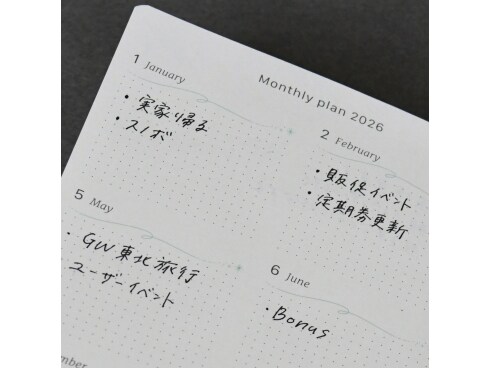 Monthly plan 2026
1 January
・実家帰る
・スノボ
2 February
・販促イベント
・定期券更新
5 May
・GW東北旅行
ユーザーイベント
6 June
・Bonus
mber